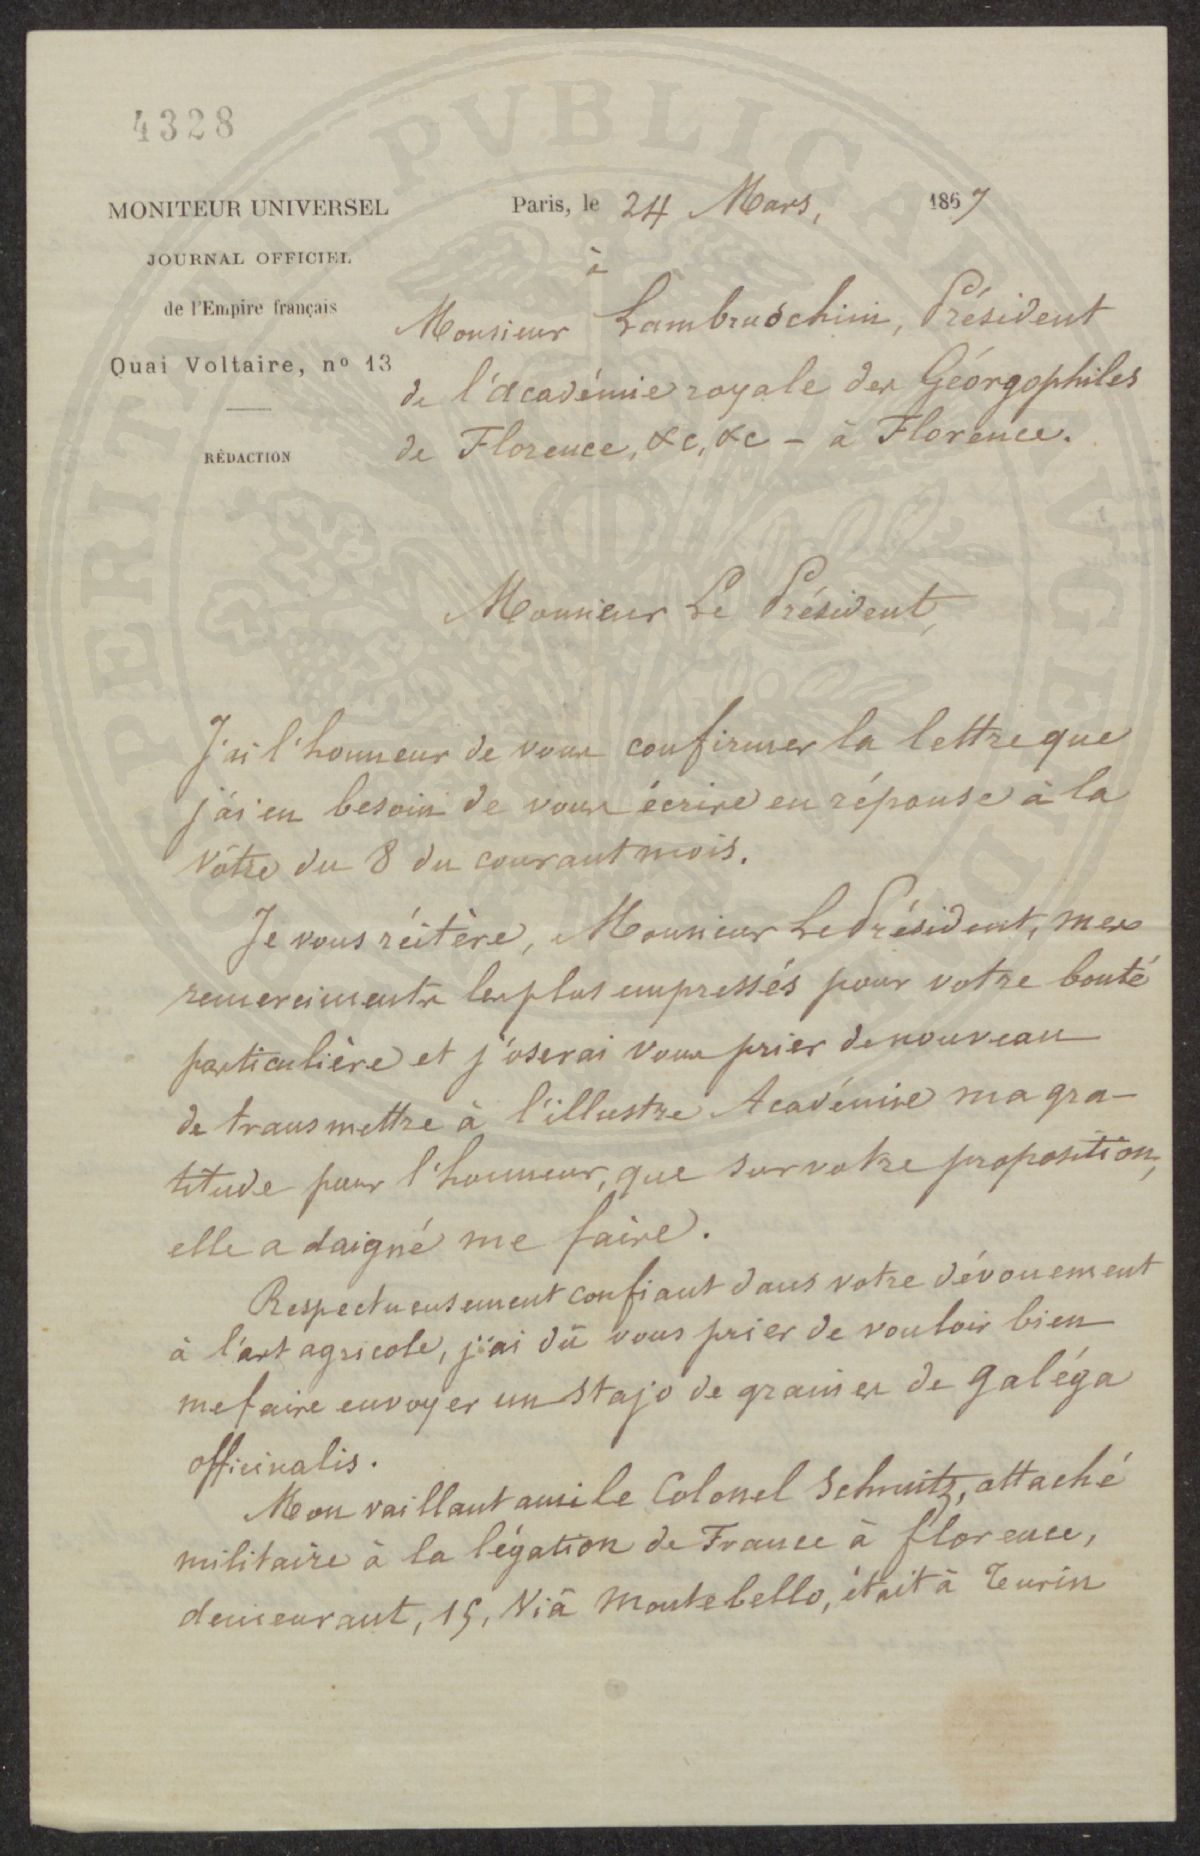 4328
MONITEUR UNIVERSEL
JOURNAL OFFICIEL
de l'Empire français
Quai Voltaire, nº 13
RÉDACTION
Paris, le 24 Mars, 1867
à
Monsieur Lambruschini, Président
de l'Académie royale des Géorgophiles
de Florence, &c, &c – à Florence.
Monsieur Le Président,
J'ai l'honneur de vous confirmer la lettre que
j'ai eu besoin de vous écrire en réponse à la
Vôtre du 8 du courant mois.
Je vous réitère, Monsieur Le Président, mes
remerciments les plus empressés pour votre bonté
particulière et j'oserai vous prier de nouveau
de transmettre à l'illustre Académie ma gra-
titude pour l'honneur, que sur votre proposition,
elle a daigné me faire.
Respectueusement confiant dans votre dévouement
à l'art agricole, j'ai dû vous prier de vouloir bien
me faire envoyer un Stajo de graines de galéga
officinalis.
Mon vaillant ami le Colonel Schmitz, attaché
militaire à la légation de France à florence,
demeurant, 15, Viâ Montebello, était à Turin
PERITI PVBLICAE